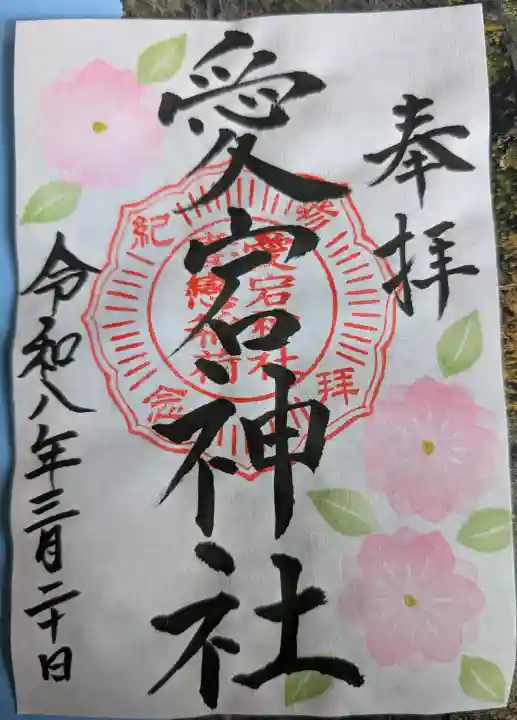 奉拝
愛宕神社
参拝紀念
愛宕神社
稲荷
令和八年三月二十日